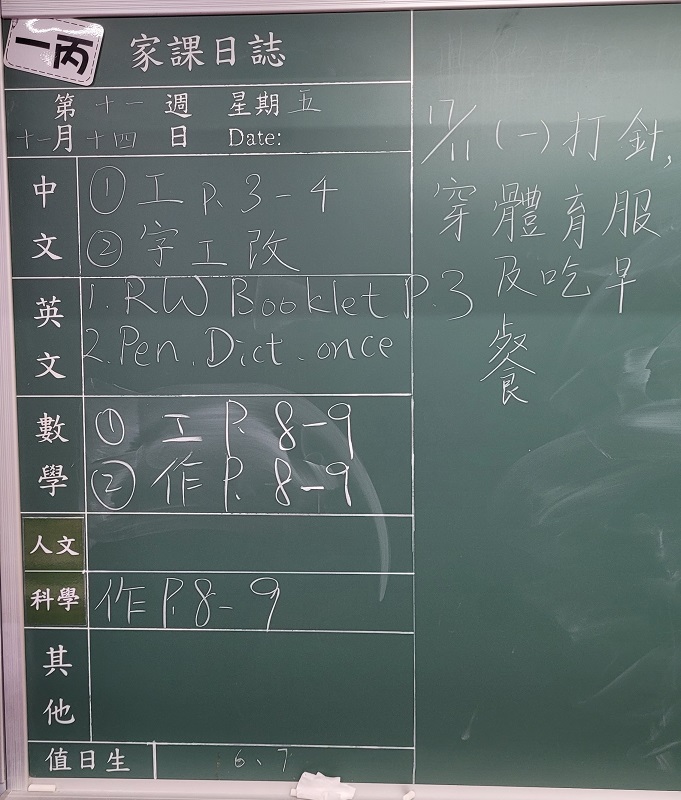 一丙
家課日誌
第十一週 星期五
十一月十四日 Date:
中文
① 工 P. 3-4
② 字工改
英文
1. RW Booklet P.3
2. Pen. Dict. once
數學
① 工 P. 8-9
② 作 P. 8-9
人文
科學
作 P. 8-9
其他
值日生
6、7
17/11 (一) 打針,
穿體育服
及吃早
餐